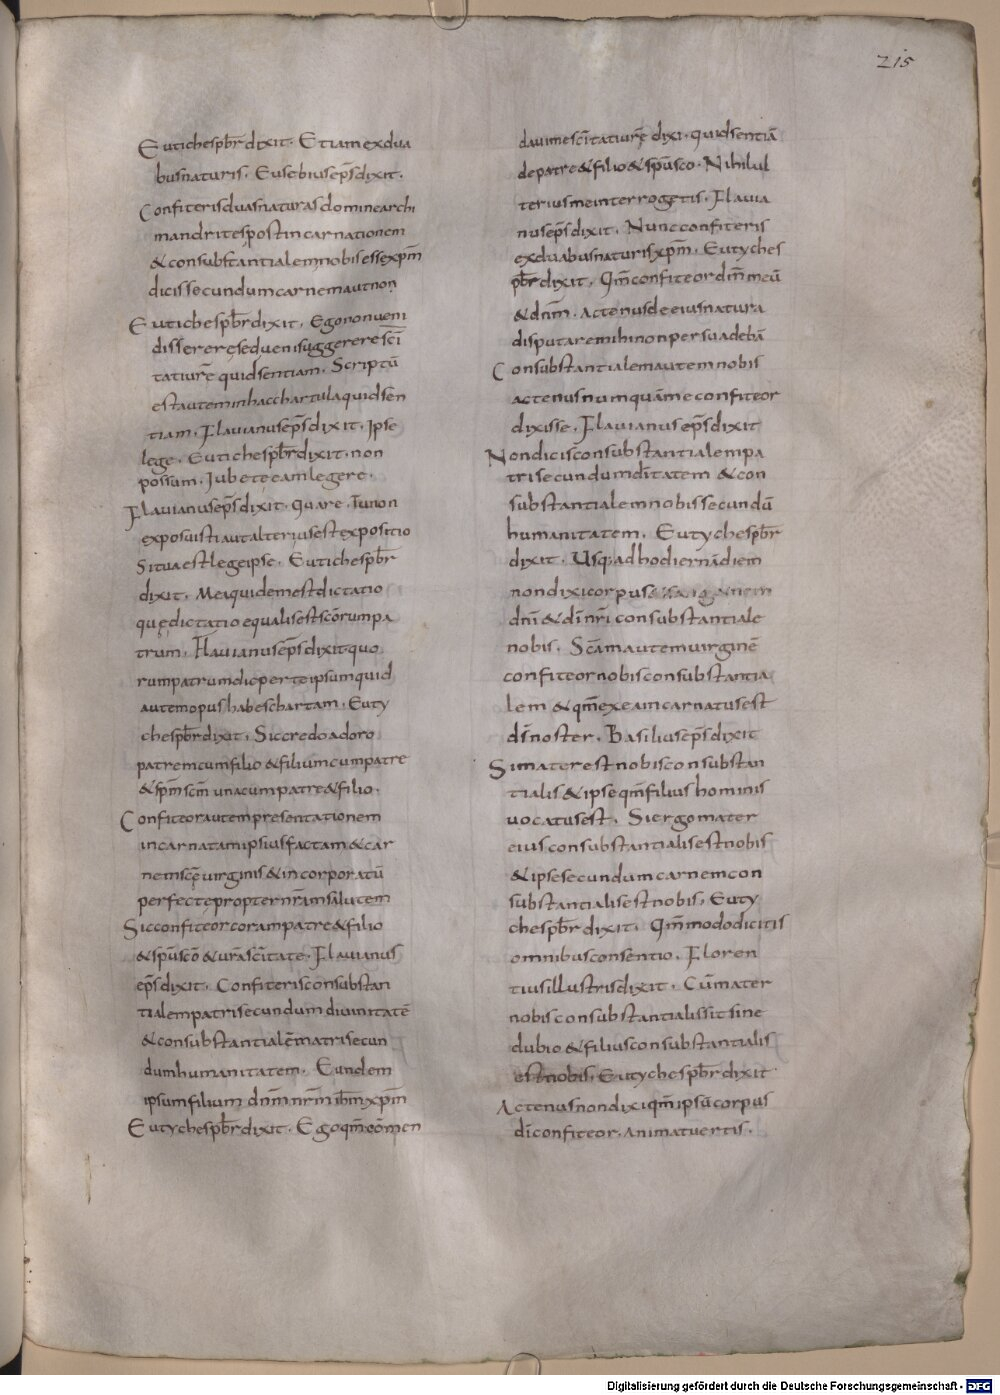 215
Eutichespb̄r dixit. Etiamexdua
busnaturis. Eusebiusep̄s dixit.
Confiterisduasnaturas dominearchi
mandritespostincarnationem
&consubstantialemnobisessexp̄m
dicissecundumcarnemautnon
Eutichespb̄rdixit. Egononueni
dissereręseduenisuggereresc̄i
tatiur̄ę quidsentiam. Scriptū
estauteminhacchartulaquidsen
tiam. Flauianusep̄sdixit. Ipse
lege. Eutichespb̄rdixit. non
possum. Jubeteeamlegere.
Flauianusep̄sdixit. Quare. Tunon
exposuistiautalteriusestexpositio
Situaestlegeipse. Eutichespb̄r
dixit. Meaquidemestdictatio
quędictatio equalisestsc̄orumpa
trum. Flauianusep̄sdixitquo
rumpatrumdicperteipsumquid
autemopushabeschartam. Euty
chespb̄rdixit. Siccredoadoro
patremcumfilio &filiumcumpatre
&sp̄msc̄m unacumpatre&filio.
Confiteorautempresentationem
incarnatamipsiusfactam&car
nemsc̄ęuirginis&incorporatū
perfectępropternr̄amsalutem
Sicconfiteorcorampatre&filio
&sp̄usc̄o &ur̄asc̄itate. Flauianus
ep̄sdixit. Confiterisconsubstan
tialempatrisecundum diuinitatē
&consubstantialēmatrisecun
dumhumanitatem. Eundem
ipsumfilium dn̄mnr̄m ih̄mxp̄m
Eutychespb̄rdixit. Egoqm̄cōmen
dauimesc̄itatiur̄ę dixi. quidsentiā
depatre&filio&sp̄usco. Nihilul
teriusmeinterrogetis. Flauia
nusep̄sdixit. Nuncconfiteris
exduabusnaturisxp̄m. Eutyches
pb̄rdixit. Qm̄confiteordm̄meū
&dn̄m. Actenusdeeiusnatura
disputaremihinonpersuadebā
Consubstantialemautemnobis
actenusnumquāmeconfiteor
dixisse. Flauianusep̄sdixit
Nondicisconsubstantialempa
trisecundumdītatem &con
substantialemnobissecundū
humanitatem. Eutychespb̄r
dixit. Usq:adhodiernādiem
nondixicorpus
dn̄i &dīnr̄i consubstantiale
nobis. Sc̄amautemuirginē
confiteornobisconsubstantia
lem &qm̄exeaincarnatusest
dīnoster. Basiliusep̄sdixit
Simaterestnobisconsubstan
tialis&ipseqm̄filiushominis
uocatusest. Siergomater
eiusconsubstantialisestnobis
&ipsesecundumcarnemcon
substantialisestnobis. Euty
chespb̄rdixit. Qm̄mododicitis
omnibusconsentio. Floren
tiusillustrisdixit. Cūmater
nobisconsubstantialissitsine
dubio &filiusconsubstantialis
estnobis. Eutychespb̄rdixit
Actenusnondixiqm̄ipsūcorpus
dīconfiteor. Animatuertis.
Digitalisierung gefördert durch die Deutsche Forschungsgemeinschaft - DFG